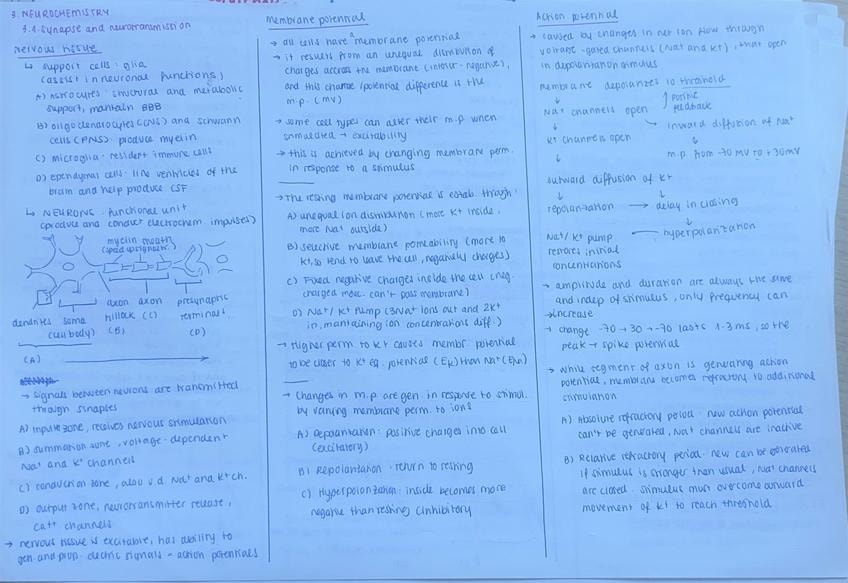 3. NEUROCHEMISTRY
3.1. Synapse and neurotransmission
Nervous tissue
↳ support cells: glia
(assist in neuronal functions)
A) Astrocytes: structural and metabolic
support, maintain BBB
B) oligodendrocytes (CNS) and schwann
cells (PNS): produce myelin
C) microglia: resident immune cells
D) ependymal cells: line ventricles of the
brain and help produce CSF
↳ NEURONS: functional unit
(produce and conduct electrochem. impulses)
myelin sheath
(speed up signals)
dendrites soma axon axon presynaptic
(cell body) hillock (C) terminals
(B) (D)
(A)
→ signals between neurons are transmitted
through synapses
A) input zone, receives nervous stimulation
B) summation zone, voltage-dependent
Na+ and K+ channels
C) conduction zone, also v.d. Na+ and K+ ch.
D) output zone, neurotransmitter release,
Ca++ channels
→ nervous tissue is excitable, has ability to
gen. and prop. electric signals - action potentials
Membrane potential
→ all cells have a membrane potential
→ it results from an unequal distribution of
charges across the membrane (interior - negative),
and this charge/potential difference is the
m.p. (mV)
→ some cell types can alter their m.p. when
stimulated → excitability
→ this is achieved by changing membrane perm.
in response to a stimulus
→ The resting membrane potential is estab. through:
A) unequal ion distribution (more K+ inside,
more Na+ outside)
B) selective membrane permeability (more to
K+, so tend to leave the cell, negatively charges)
C) Fixed negative charges inside the cell (neg.
charged molec. can't pass membrane)
D) Na+/K+ pump (3Na+ ions out and 2K+
in, maintaining ion concentrations diff.)
→ Higher perm to K+ causes membr. potential
to be closer to K+ eq. potential (EK) than Na+ (ENa)
→ Changes in m.p. are gen. in response to stimul.
by varying membrane perm. to ions
A) Depolarization: positive charges into cell
(excitatory)
B) Repolarization: return to resting
C) Hyperpolarization: inside becomes more
negative than resting (inhibitory
Action potential
→ caused by changes in net ion flow through
voltage-gated channels (Na+ and K+), that open
in depolarization stimulus
membrane depolarizes to threshold
↓ ↑ positive
Na+ channels open feedback
↓ ↘ inward diffusion of Na+
K+ channels open ↓
↓ m.p. from -70mV to +30mV
outward diffusion of K+
↓
repolarization → delay in closing
↓
Na+/K+ pump ← hyperpolarization
restores initial
concentrations
→ amplitude and duration are always the same
and indep of stimulus, only frequency can
increase
→ change -70 → 30 → -70 lasts 1-3 ms, so the
peak → spike potential
→ while segment of axon is generating action
potential, membrane becomes refractory to additional
stimulation
A) Absolute refractory period: new action potential
can't be generated, Na+ channels are inactive
B) Relative refractory period: new can be generated
if stimulus is stronger than usual, Na+ channels
are closed. stimulus must overcome outward
movement of K+ to reach threshold